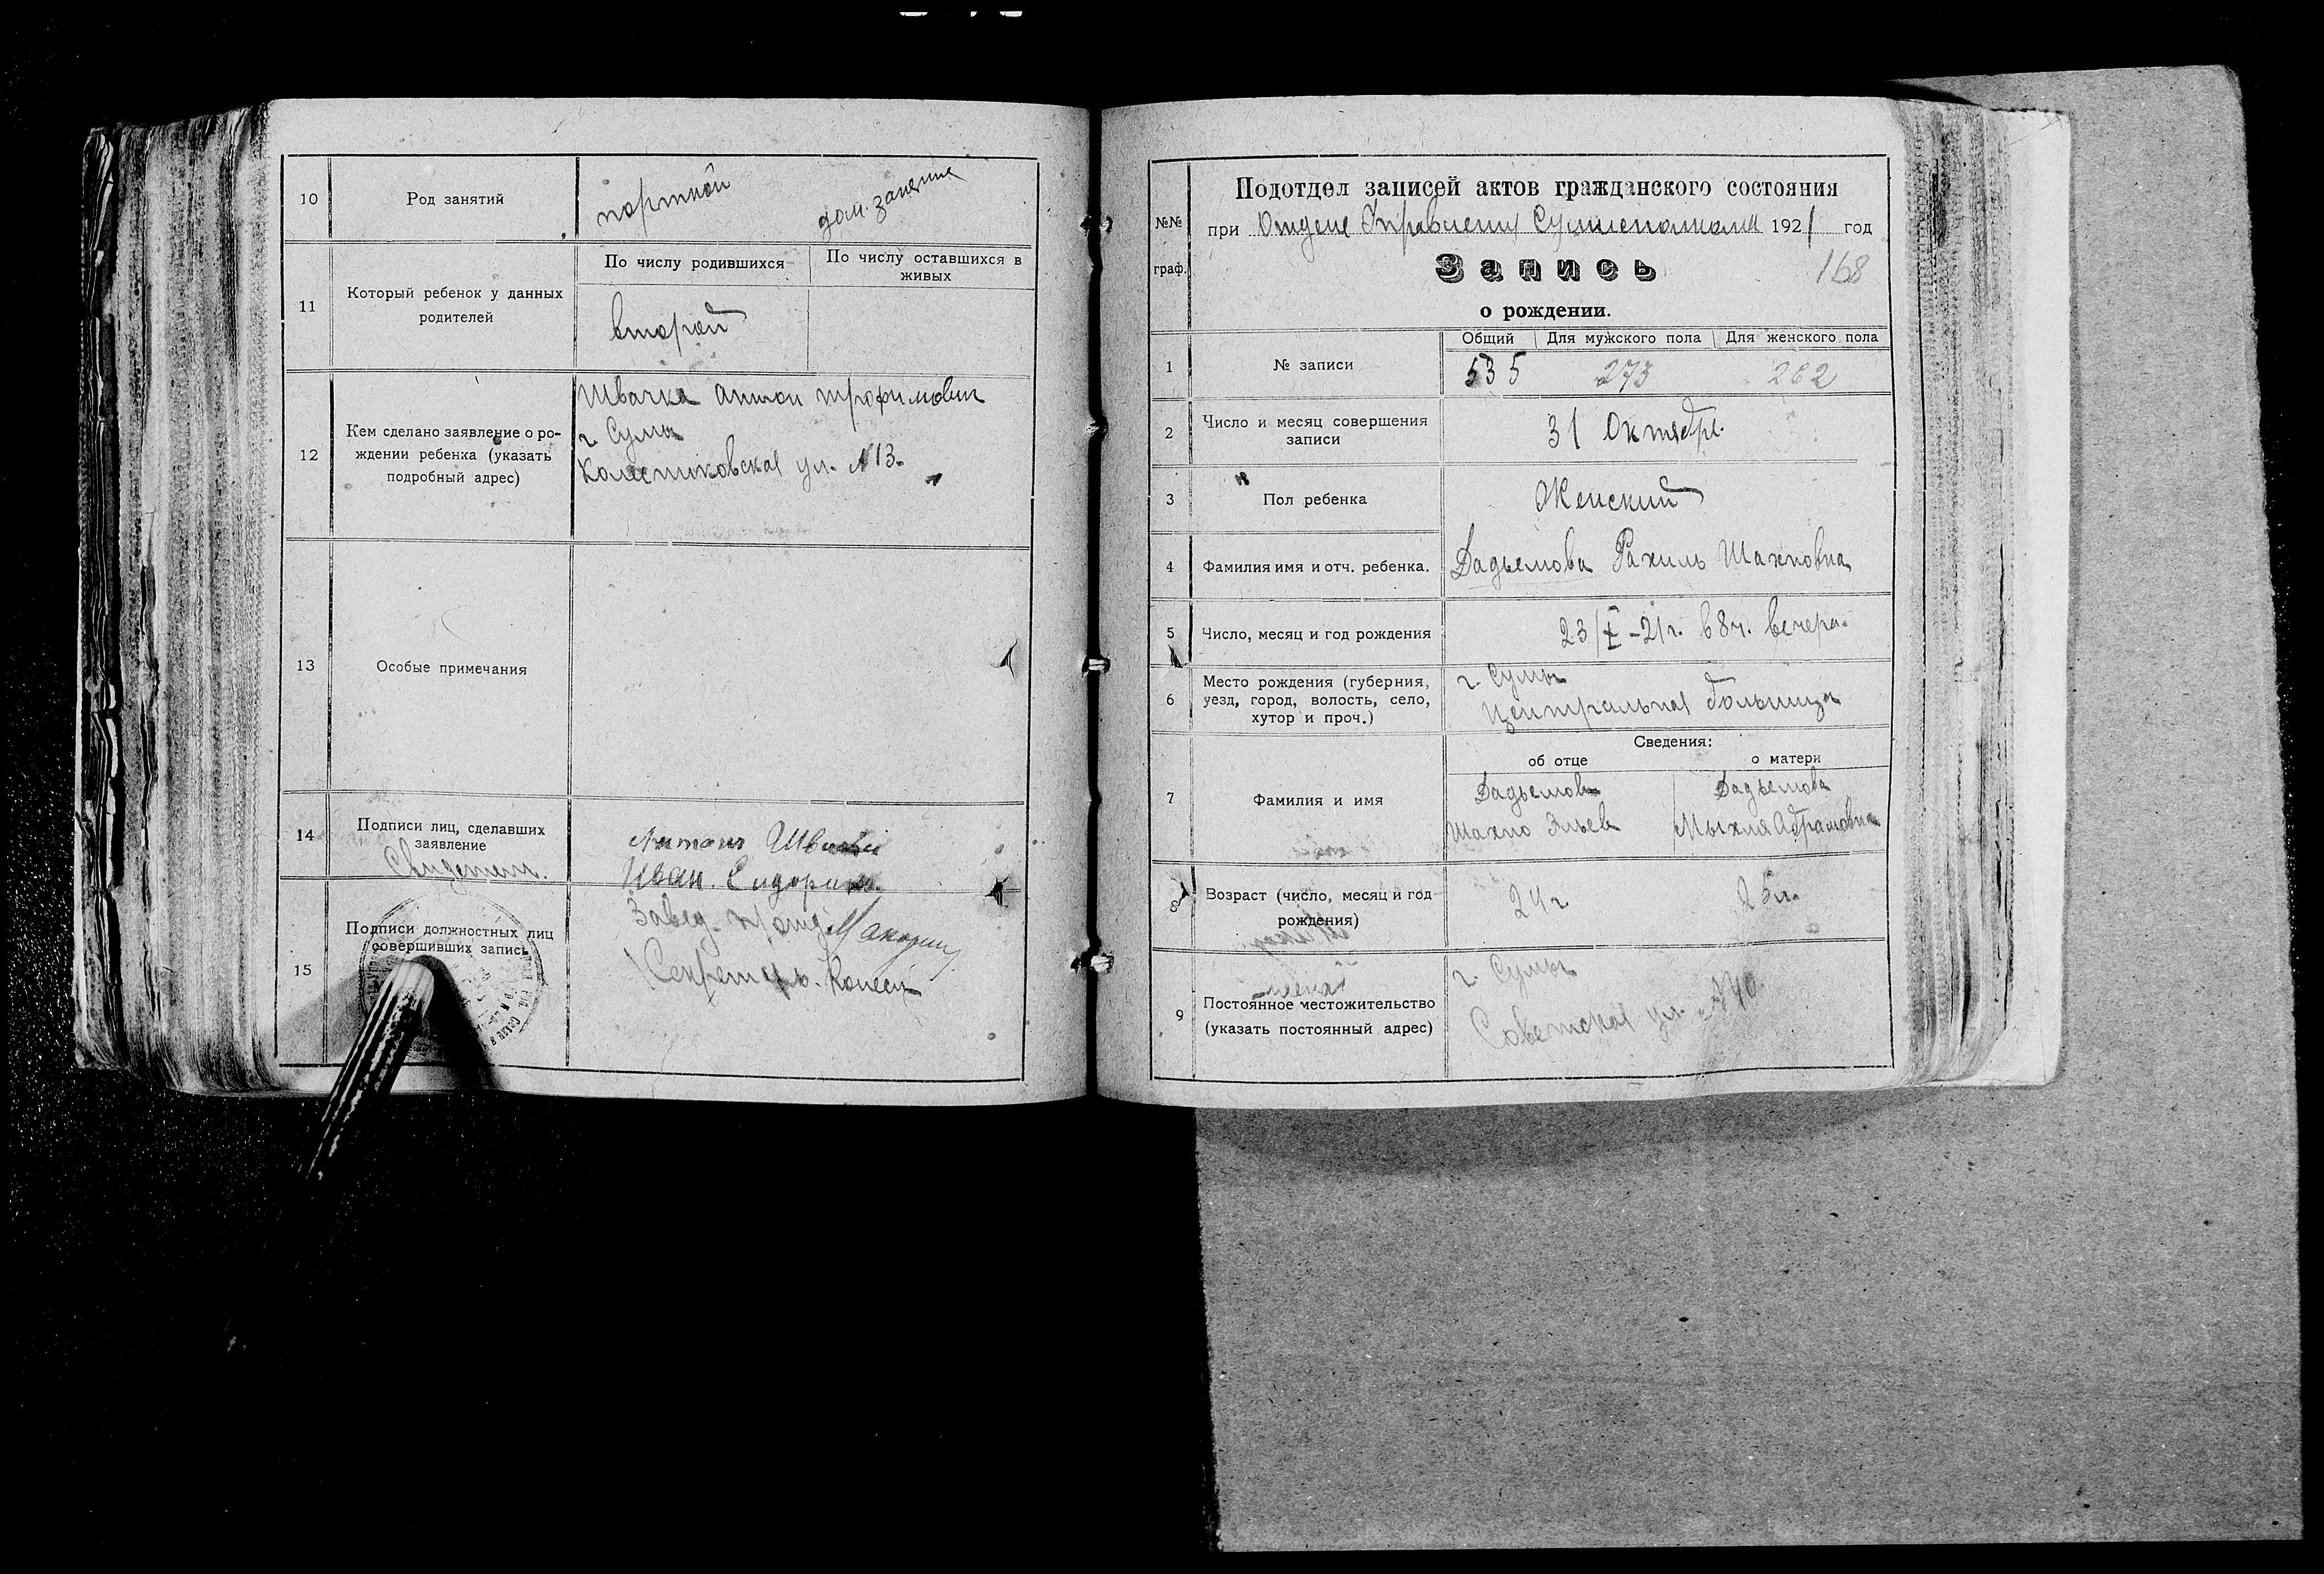 10
Род занятий
портной
дом. занятие
11
Который ребенок у данных
родителей
По числу родившихся
По числу оставшихся в
живых
второй
12
Кем сделано заявление о ро-
ждении ребенка (указать
подробный адрес)
Швачка Антон Трофимович
г. Сумы
ул. №13.
13
Особые примечания
14
Подписи лиц, сделавших
заявление
Свидетели.
Антон
Иван.
15
Подписи должностных лиц
совершивших запись
Завед.
Секретарь.
№№
граф.
Подотдел записей актов гражданского состояния
при Отделе Управления 1921 год
Запись
168
о рождении.
1
№ записи
Общий
Для мужского пола
Для женского пола
535
273
262
2
Число и месяц совершения
записи
31 Октября.
3
Пол ребенка
Женский
4
Фамилия имя и отч. ребенка.
Дадьемова Рахиль Шахновна
5
Число, месяц и год рождения
23/X–21г. в 8ч. вечера.
6
Место рождения (губерния,
уезд, город, волость, село,
хутор и проч.)
г. Сумы
Центральная больница
7
Фамилия и имя
Сведения:
об отце
о матери
Дадьемов
Шахно Эльев
Дадьемова
Мыхля Абрамовна
8
Возраст (число, месяц и год
рождения)
24г.
25л.
9
Постоянное местожительство
(указать постоянный адрес)
г. Сумы
Советская ул. №40.